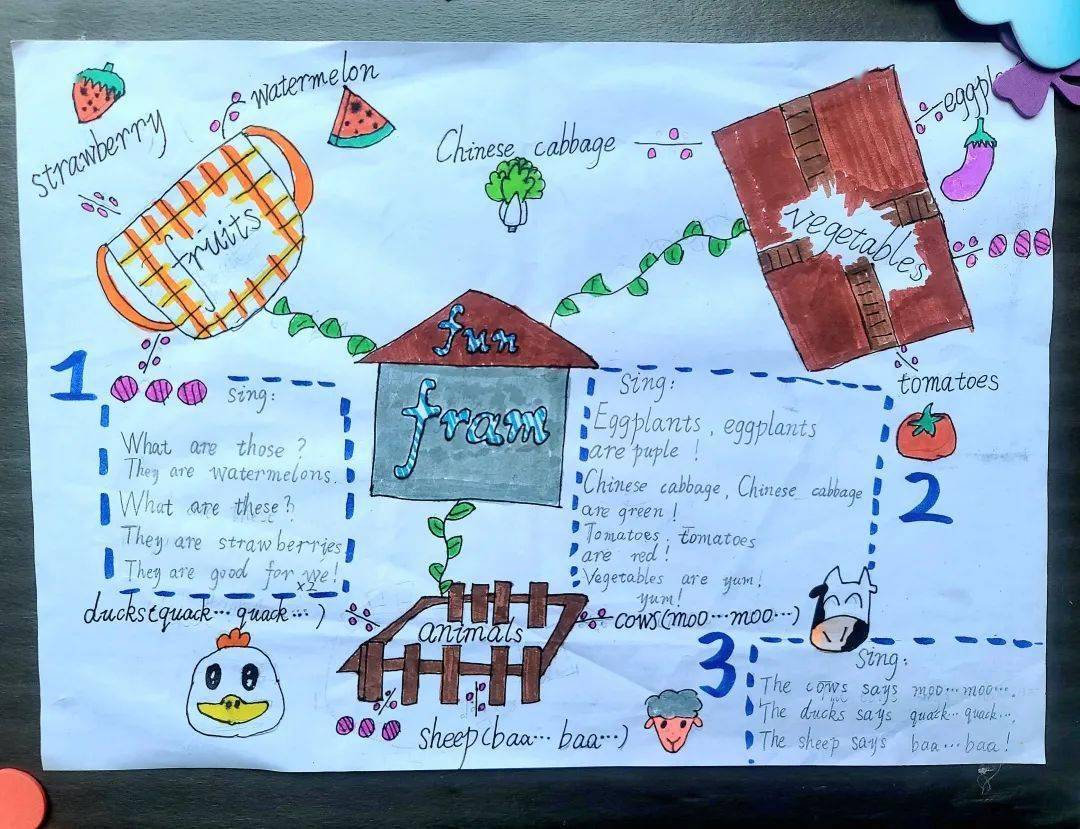 strawberry
watermelon
fruits
Chinese cabbage
eggpl
vegetables
tomatoes
fun
fram
1
sing:
What are those?
They are watermelons.
What are these?
They are strawberries
They are good for we!
×2
Sing:
Eggplants, eggplants
are puple!
Chinese cabbage, Chinese cabbage
are green!
Tomatoes, tomatoes
are red!
Vegetables are yum!
yum!
2
ducks(quack··· quack···)
animals
cows(moo···moo···)
sheep(baa··· baa···)
3
Sing:
The cows says moo···moo···.
The ducks says quack··quack··.
The sheep says baa···baa!